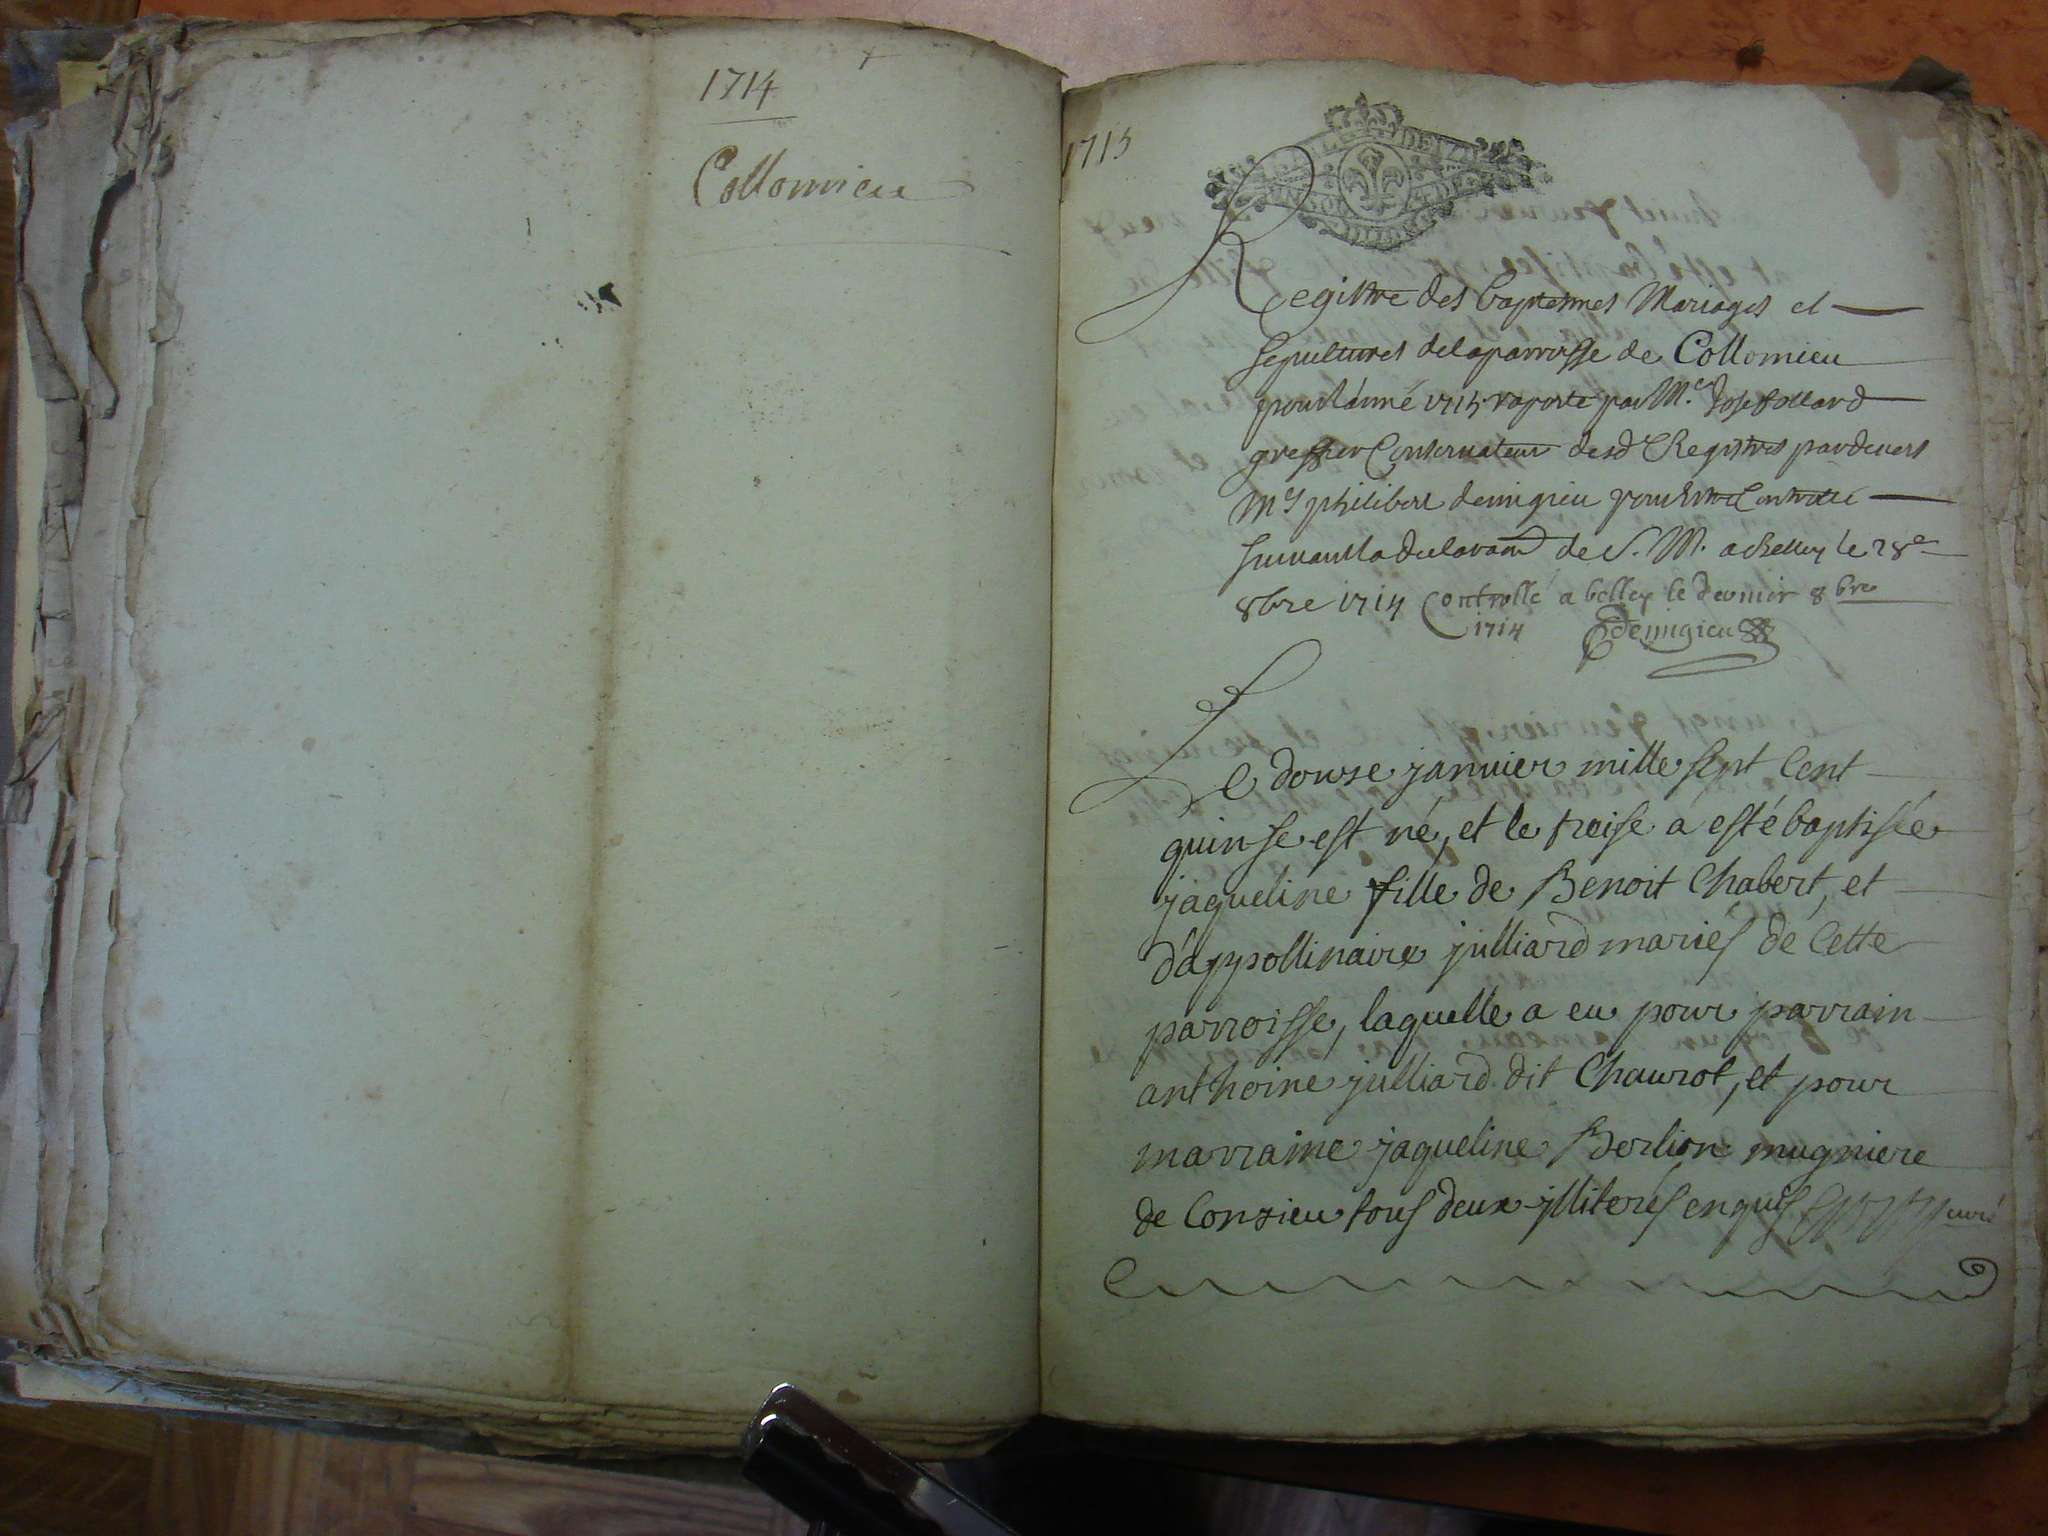 1714
Collomieu
1715
Registre des baptesmes Mariages et
sepultures de la parroisse de Collomieu
pour l'anné 1715 raporte par Me Jose follard
greffier Conservateur desd Registres pardevers
Me philibert demigieu pour Estre Controlle
suivant la declaraon de S. M. a Belley le 28e
8bre 1714 Controllé a belley le dernier 8bre
1714 Demigieu
Le douze janvier mille sept cent
quinse est né, et le treise a esté baptisée
jaqueline fille de Benoit Chabert, et
d'appollinaire julliard mariés de cette
parroisse, laquelle a eu pour parrain
anthoine julliard dit Chaurot, et pour
marraine jaqueline Berlion mugniere
de Conzieu tous deux jlliterés enquis curé